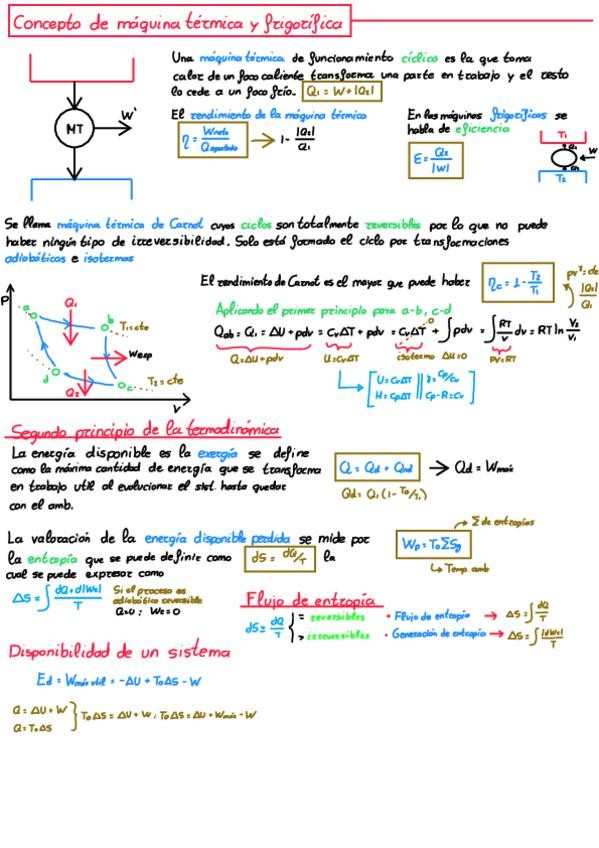 Concepto de máquina térmica y frigorífica
Una máquina térmica de funcionamiento cíclico es la que toma
calor de un foco caliente transforma una parte en trabajo y el resto
lo cede a un foco frío. Q₁ = W+|Q₂|
MT
W'
El rendimiento de la máquina térmica
η = Wneto / Qaportado → 1- |Q₂|/Q₁
En las máquinas frigoríficas se
habla de eficiencia
ε = Q₂/|W|
T₁
Q₁
W
Q₂
T₂
Se llama máquina térmica de Carnot cuyos ciclos son totalmente reversibles por lo que no puede
haber ningún tipo de irreversibilidad. Solo está formado el ciclo por transformaciones
adiabáticas e isotermas
El rendimiento de Carnot es el mayor que puede haber
ηc = 1 - T₂/T₁
|Q₂|/Q₁
P
a
Q₁
b
T₁=cte
Wexp
d
Q₂
c
T₂=cte
V
Aplicando el primer principio para a-b, c-d
Qab = Q₁ = ΔU + pdv = CvΔT + pdv = CvΔT + ∫pdv = ∫ RT/V dv = RT ln V₂/V₁
Q=ΔU+pdv
U=CvΔT
isotermo ΔU=0
PV=RT
U=CvΔT || γ=Cp/Cv
H=CpΔT || Cp-R=Cv
Segundo principio de la termodinámica
La energía disponible es la exergía se define
como la máxima cantidad de energía que se transforma
en trabajo util al evolucionar el sist. hasta quedar
con el amb.
Q = Qd + Qnd → Qd = Wmáx
Qd = Q₁(1 - T₀/T₁)
La valoración de la energía disponible perdida se mide por
la entropía que se puede definir como dS = dQ/T la
cual se puede expresar como
Σ de entropías
Wp = T₀ΣSg
Temp. amb
ΔS = ∫ dQ+d|We| / T
Si el proceso es
adiabático reversible
Q=0 ; We=0
Flujo de entropía
dS ≥ dQ/T
= reversibles
> irreversibles
• Flujo de entropía → ΔS = ∫ dQ/T
• Generación de entropía → ΔS = ∫ |dWe|/T
Disponibilidad de un sistema
Ed = Wmáx util = -ΔU + T₀ΔS - W
Q = ΔU + W
Q = T₀ΔS
T₀ΔS = ΔU + W ; T₀ΔS = ΔU + Wmáx - W